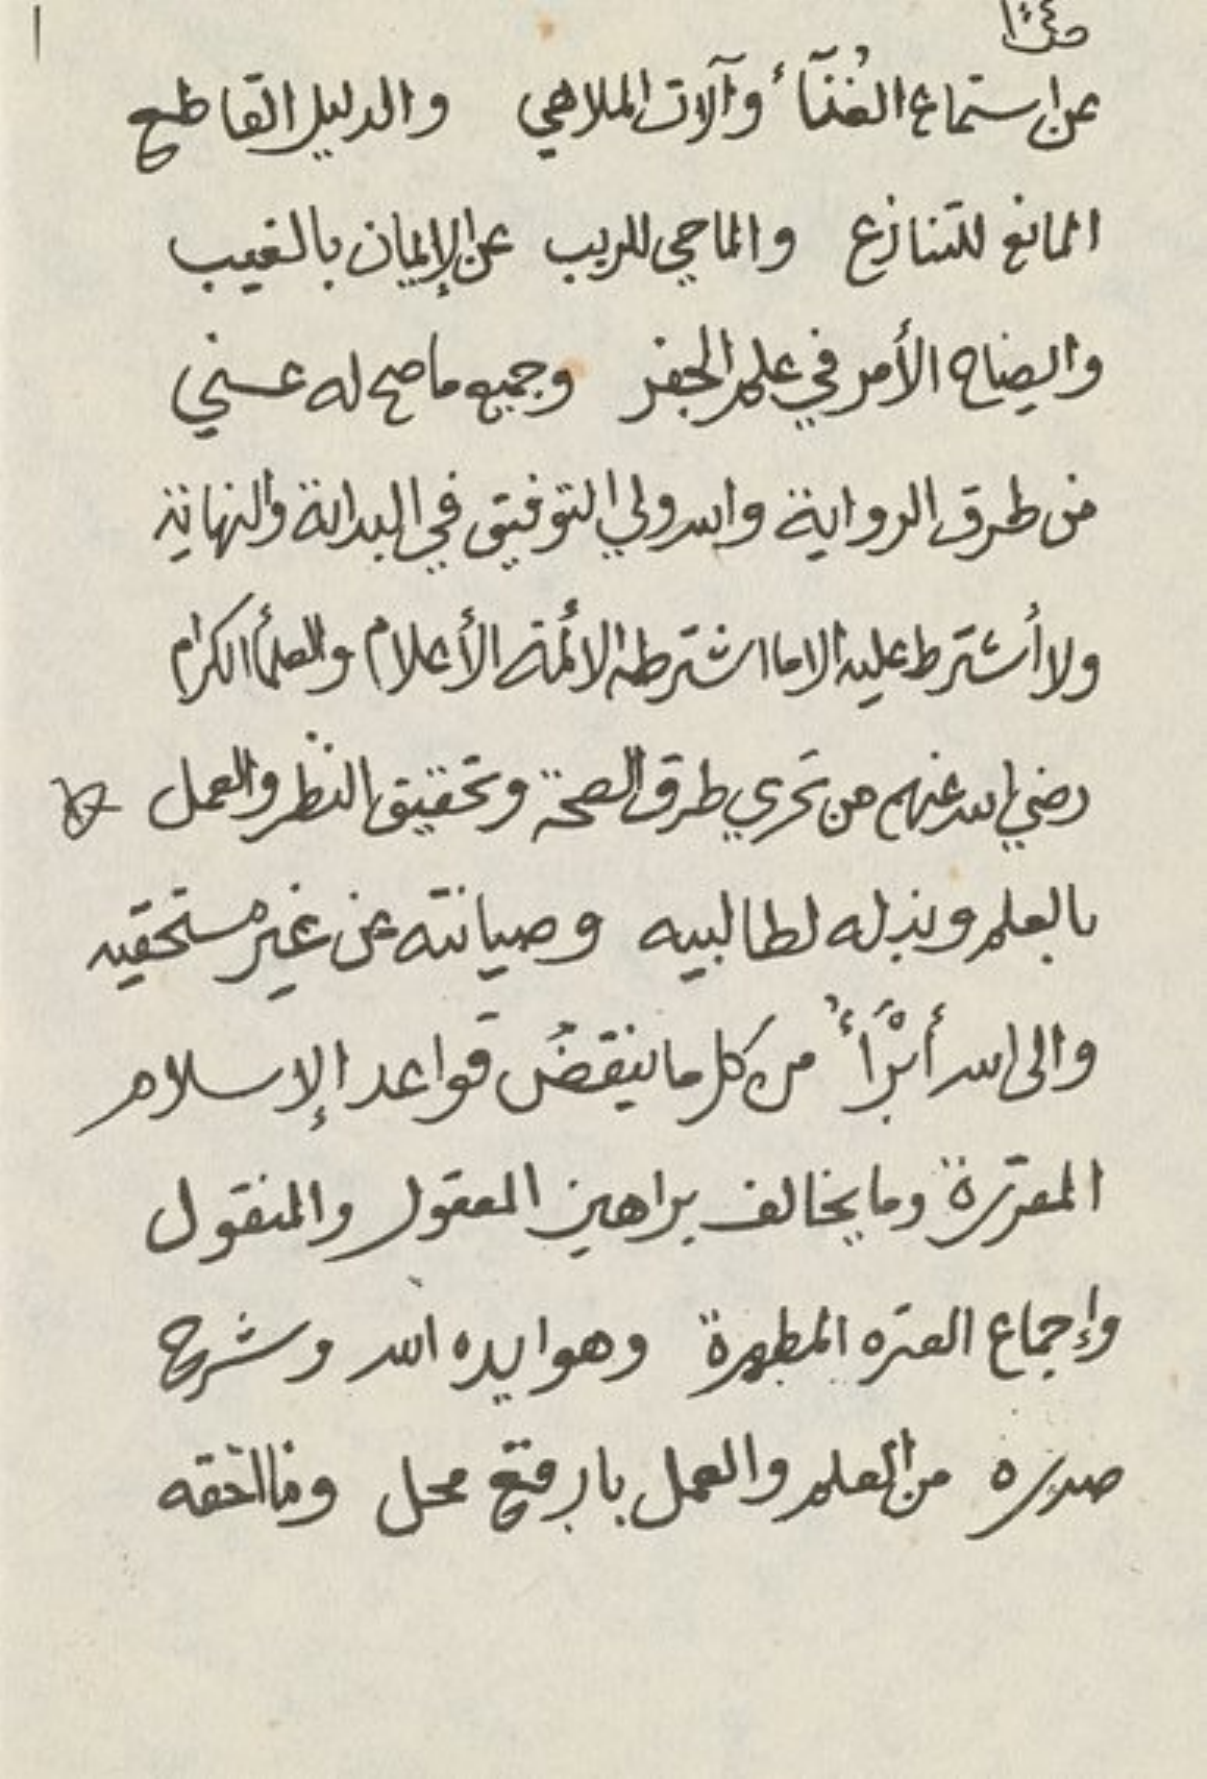 عن استماع الغُنَآءُ وآلات الملاهي والدليل القاطع
المانع للتنازع والماحي للريب عن الإيمان بالغيب
وايضاح الأمر في علم الجفر وجميع ما صح له عني
من طرق الرواية والله ولي التوفيق في البداية والنهاية
ولا أشترط عليه الا ما اشترطه الائمة الأعلام والعلمأ الكرام
رضي الله عنهم من تحري طرق الصحة وتحقيق النظر والعمل
بالعلم وبذله لطالبيه وصيانته عن غير مستحقيه
والى الله أَبْرَأُ من كل ما ينقضُ قواعد الإسلام
المقرّرة وما يخالف براهين المعقول والمنقول
وإجماع العتره المطهرة وهو ايده الله وشرح
صدره من العلم والعمل بارفع محل